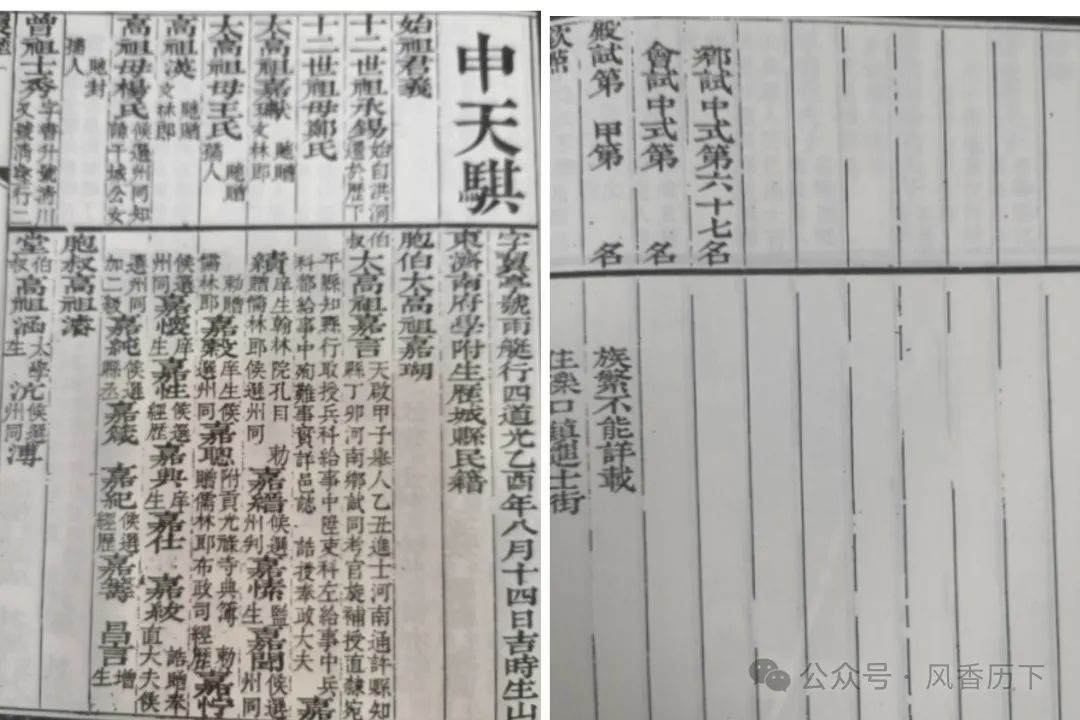 申天騏
始祖君義
十二世祖永錫 始自洪河遷於歷下
十二世祖母鄭氏
太高祖嘉猷 馳贈文林郎
太高祖母王氏 馳贈孺人
高祖漢 馳贈文林郎
高祖母楊氏 候選州同知諱干城公女
馳封孺人
曾祖士秀 字書升號清川又號清泉行二
字翼亭號雨艇行四道光乙酉年八月十四日吉時生山
東濟南府學附生歷城縣民籍
胞伯太高祖嘉瑚
伯叔太高祖嘉言 天啟甲子舉人乙丑進士河南通許縣知縣丁卯河南鄉試同考官旋補授直隸宛
平縣知縣行取授兵科給事中陞吏科左給事中兵
科都給事中殉難事實詳邑誌 誥授奉政大夫 嘉
賓 庠生翰林院孔目 勅贈儒林郎候選州同 嘉縉 候選州判 嘉愫 監生 嘉聞 候選州同
勅贈儒林郎 嘉穀 庠生候選州同 嘉聰 附貢光祿寺典簿 勅贈儒林郎布政司經歷 嘉行
候選州同 嘉懓 庠生 嘉性 候選經歷 嘉興 庠生 嘉仕 嘉綬 誥贈奉直大夫候
選州同加二級 嘉純 候選縣丞 嘉箴 嘉紀 候選經歷 嘉壽 昌言 增生
胞叔高祖濬
堂伯叔高祖涵 太學生 沆 候選州同 溥
鄉試中式第六十七名
會試中式第 名
殿試第 甲第 名
欽點
族繁不能詳載
生欒口鎮進士街
公众号·风香历下